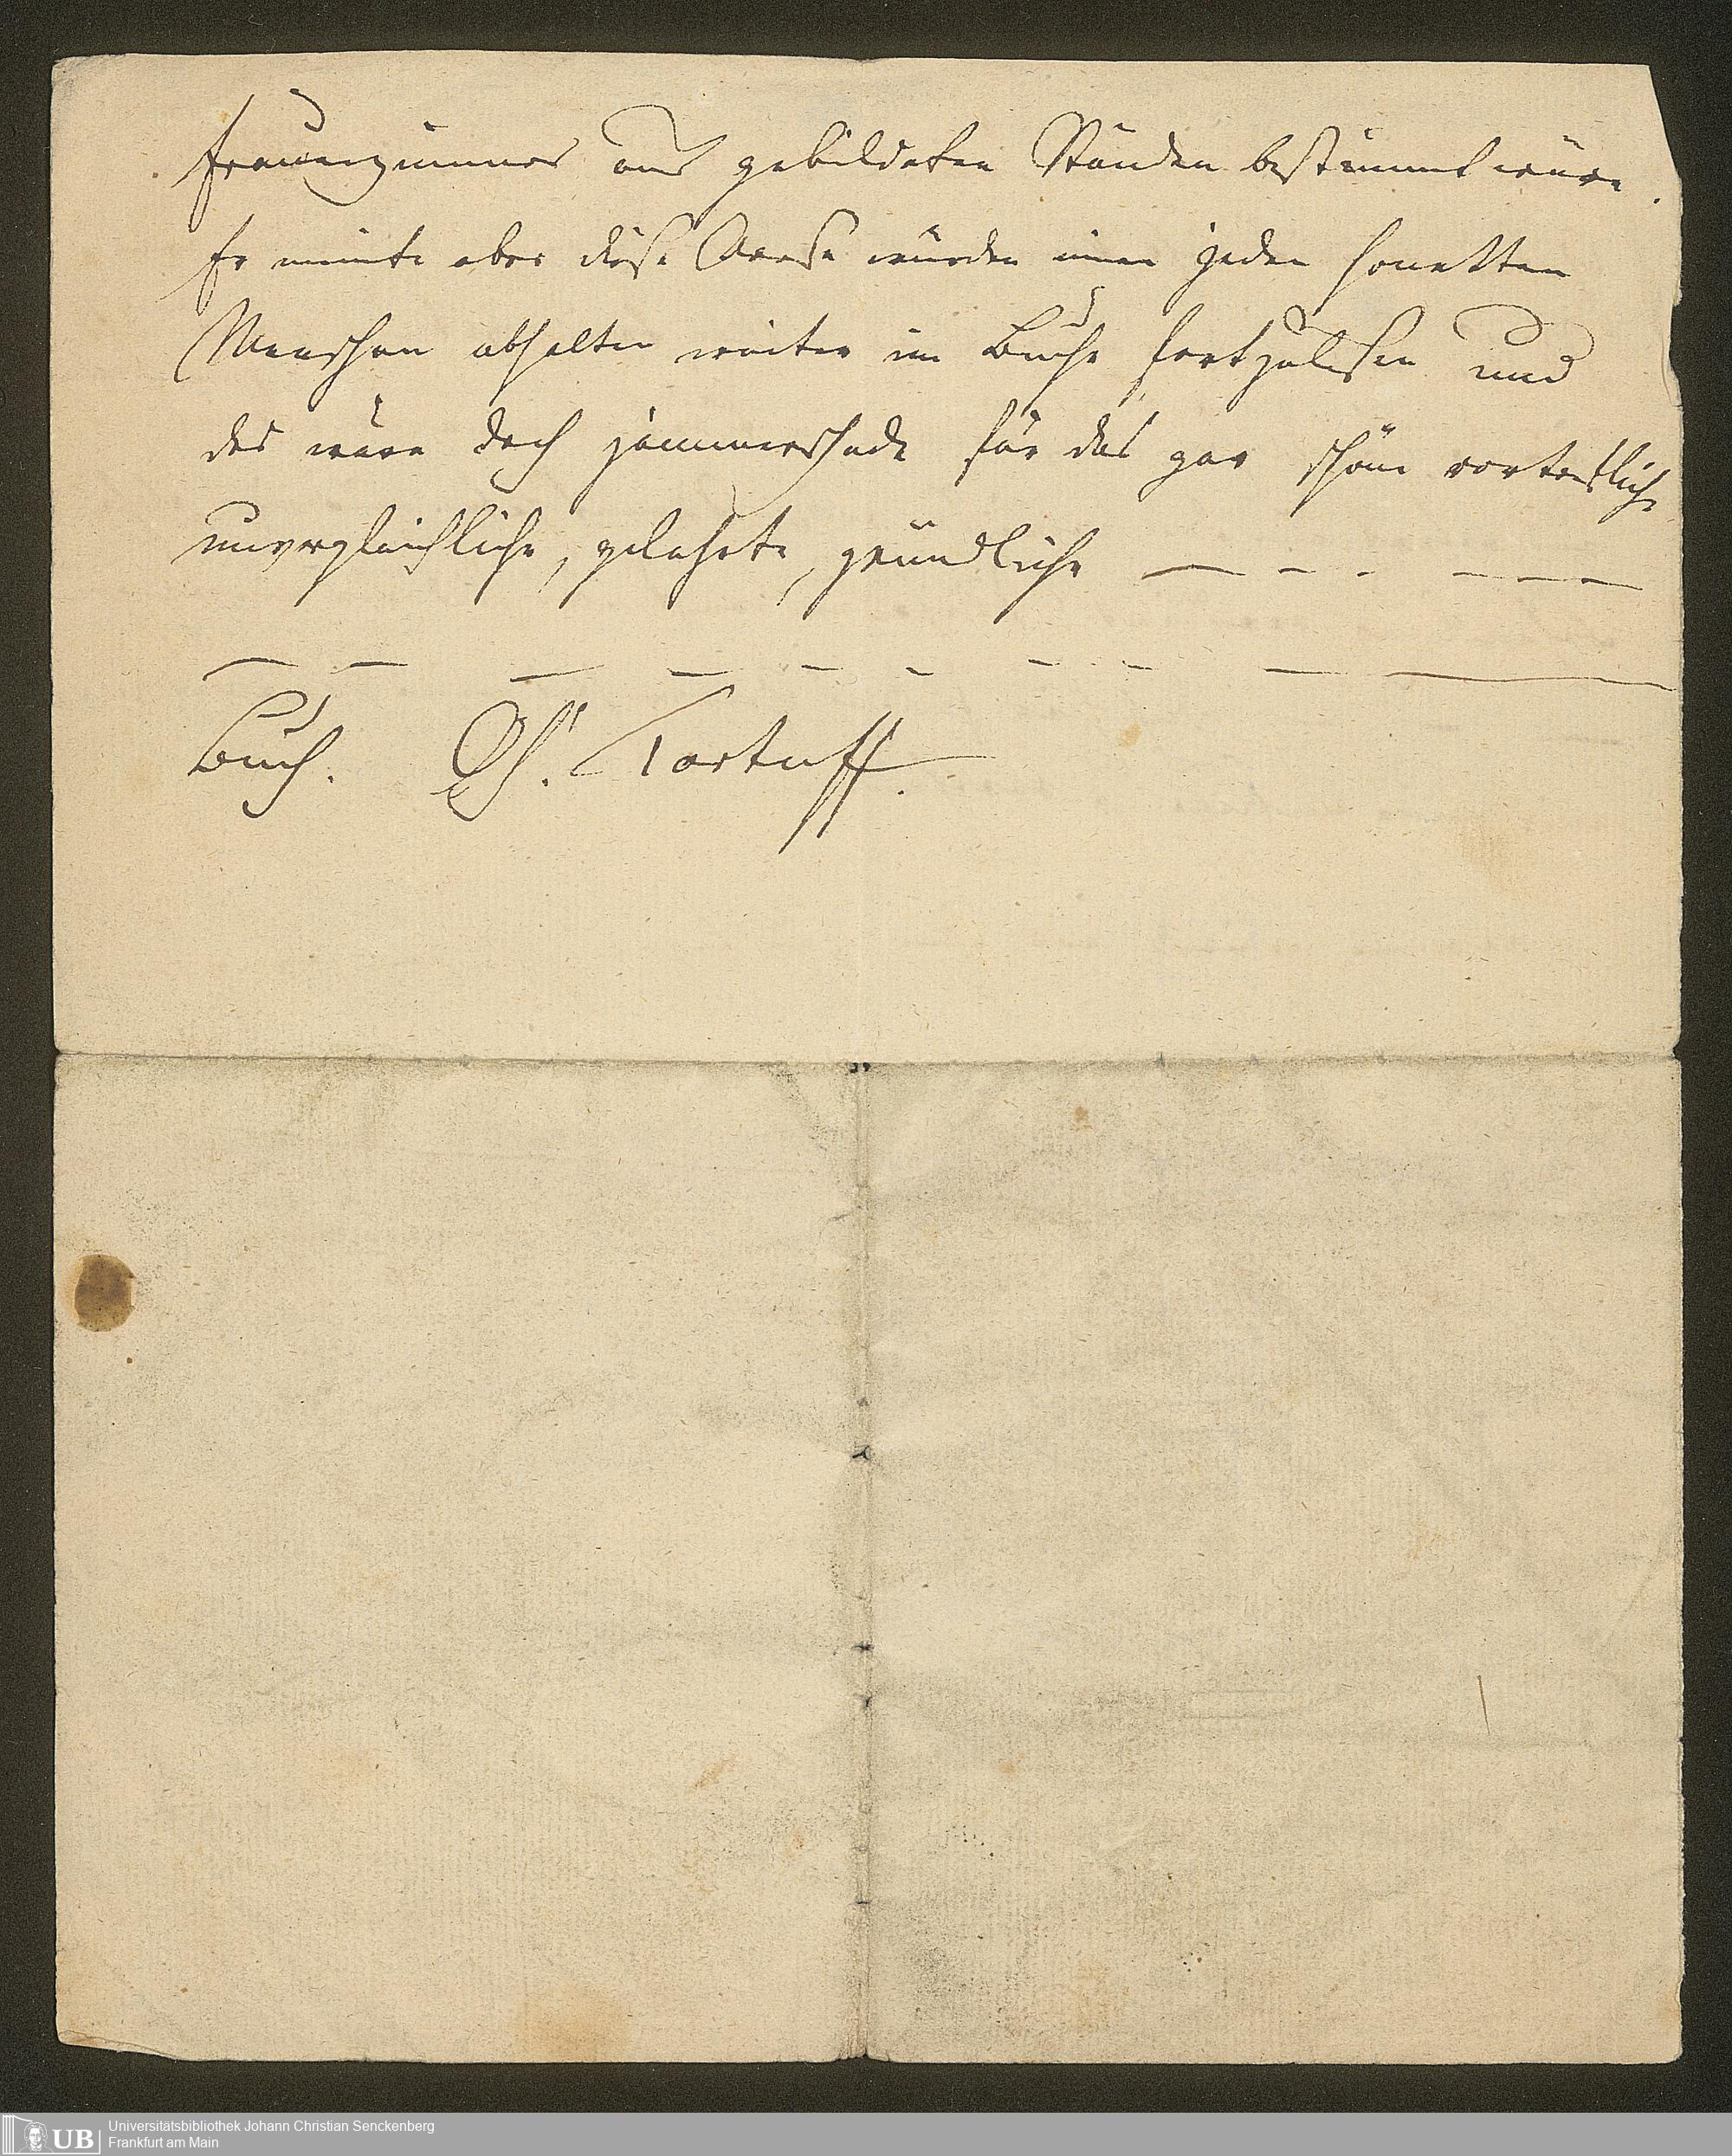 Frauenzimmer aus gebildeten Ständen bestimmt wäre.
Er meinte aber diese Verse würden einen jeden honetten
Menschen abhalten weiter im Buche fortzulesen und
das wäre doch jammerschade für das gar schöne vortreffliche
unvergleichliche, gelehrte, gründliche — – - – – —
— — — – – - – - — —
Buch. Oh! Tartuff.
Universitätsbibliothek Johann Christian Senckenberg
Frankfurt am Main
UB